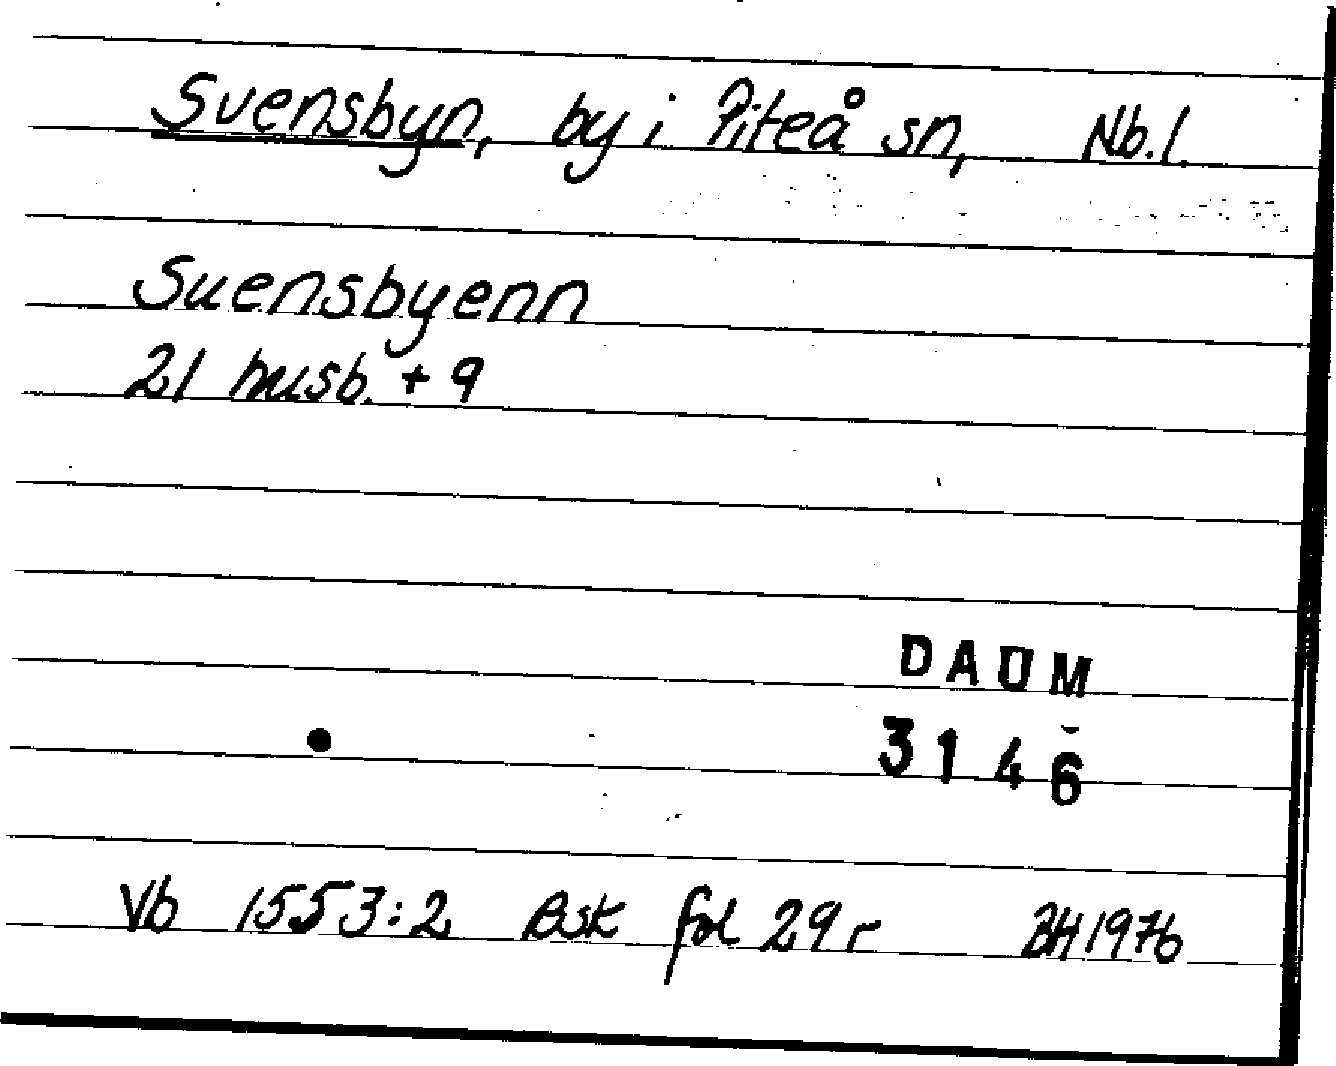 Svensbyn, by i Piteå sn, Nb. l.
Suensbyenn
21 husb. + 9
DAUM
3146
Vb 1553:2 Bsk fol 29 r BH 1976